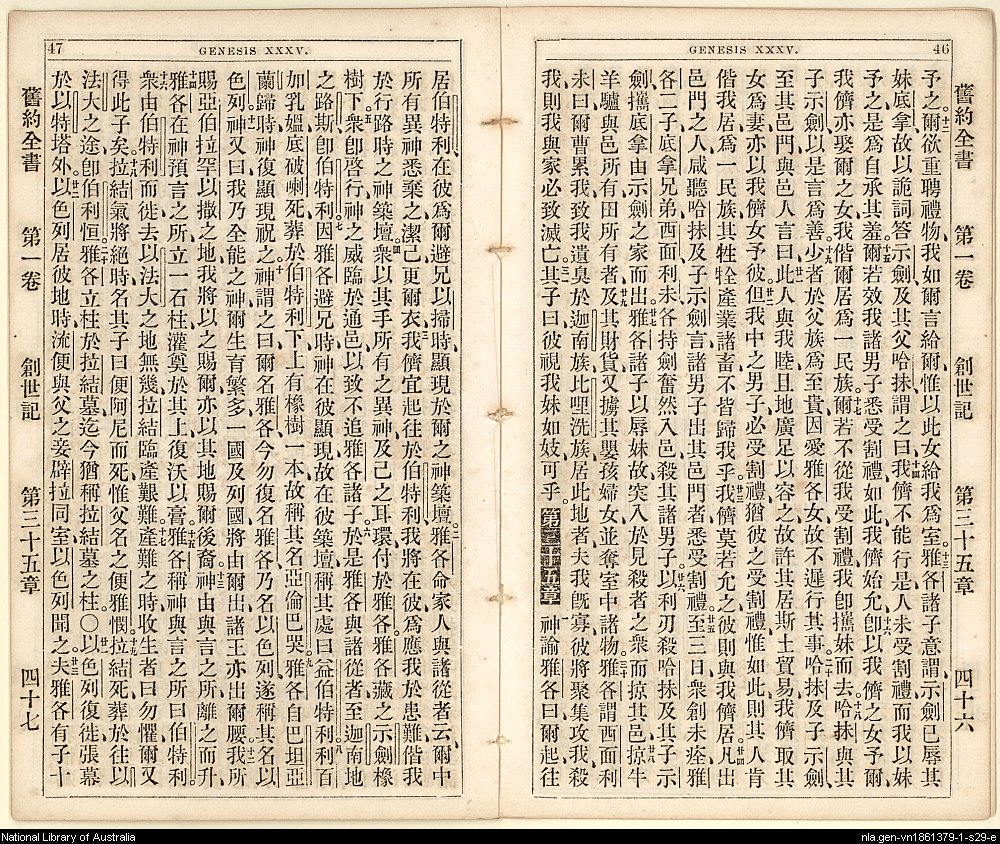 46
GENESIS XXXV.
舊約全書　第一卷　創世記　第三十五章　四十六
予之爾欲重聘禮物我如爾言給爾惟以此女給我爲室雅各諸子意謂示劍已辱其
妹底拿故以詭詞答示劍及其父哈抹謂之曰我儕不能行是人未受割禮而我以妹
予之是爲自承其羞爾若效我諸男子悉受割禮如此我儕始允卽以我儕之女予爾
我儕亦娶爾之女我偕爾居爲一民族爾若不從我受割禮我卽攜妹而去哈抹與其
子示劍以是言爲善少者於父族爲至貴因愛雅各女故不遲行其事哈抹及子示劍
至其邑門與邑人言曰此人與我睦且地廣足以容之故許其居斯土貿易我儕取其
女爲妻亦以我儕女予彼但我中之男子必受割禮猶彼之受割禮惟如此則其人肯
偕我居爲一民族其牲牷產業諸畜不皆歸我乎我儕莫若允之彼則與我儕居凡出
邑門之人咸聽哈抹及子示劍言諸男子出其邑門者悉受割禮至三日衆創未痊雅
各二子底拿兄弟西面利未各持劍奮然入邑殺其諸男子以利刃殺哈抹及其子示
劍攜底拿由示劍之家而出雅各諸子以辱妹故突入於見殺者之衆而掠其邑掠牛
羊驢與邑所有田所有者及其財貨又擄其嬰孩婦女並奪室中諸物雅各謂西面利
未曰爾曹累我使我遺臭於迦南族比哩洗族居此地者夫我旣寡彼將聚集攻我殺
我則我與家必致滅亡其子曰彼視我妹如妓可乎第三十五章神諭雅各曰爾起往
47
GENESIS XXXV.
居伯特利在彼爲爾避兄以掃時顯現於爾之神築壇雅各命家人與諸從者云爾中
所有異神悉棄之潔己更爾衣我儕宜起往於伯特利我將在彼爲應我於患難偕我
於行路時之神築壇衆以其手所有之異神及己之耳環付於雅各雅各藏之示劍橡
樹下衆卽啓行神之威臨於通邑以致不追雅各諸子於是雅各與諸從者至迦南地
之路斯卽伯特利因雅各避兄時神在彼顯現故在彼築壇稱其處曰益伯特利利百
加乳媼底破喇死葬於伯特利下上有橡樹一本故稱其名亞倫巴哭雅各自巴坦亞
蘭歸時神復顯現祝之神謂之曰爾名雅各今勿復名雅各乃名以色列遂稱其名以
色列神又曰我乃全能之神爾生育繁多一國及列國將由爾出諸王亦出爾腰我所
賜亞伯拉罕以撒之地我將以之賜爾亦以其地賜爾後裔神由與言之所離之而升
雅各在神預言之所立一石柱灌奠於其上復沃以膏雅各稱神與言之所曰伯特利
衆由伯特利而徙去以法大之地無幾拉結臨產艱難產難之時收生者曰勿懼爾又
得此子矣拉結氣將絕時名其子曰便阿尼而死惟父名之便雅憫拉結死葬於往以
法大之途卽伯利恒雅各立柱於拉結墓迄今猶稱拉結墓之柱〇以色列復徙張幕
於以特塔外以色列居彼地時流便與父之妾辟拉同室以色列聞之夫雅各有子十
舊約全書　第一卷　創世記　第三十五章　四十七
National Library of Australia
nla.gen-vn1861379-1-s29-e